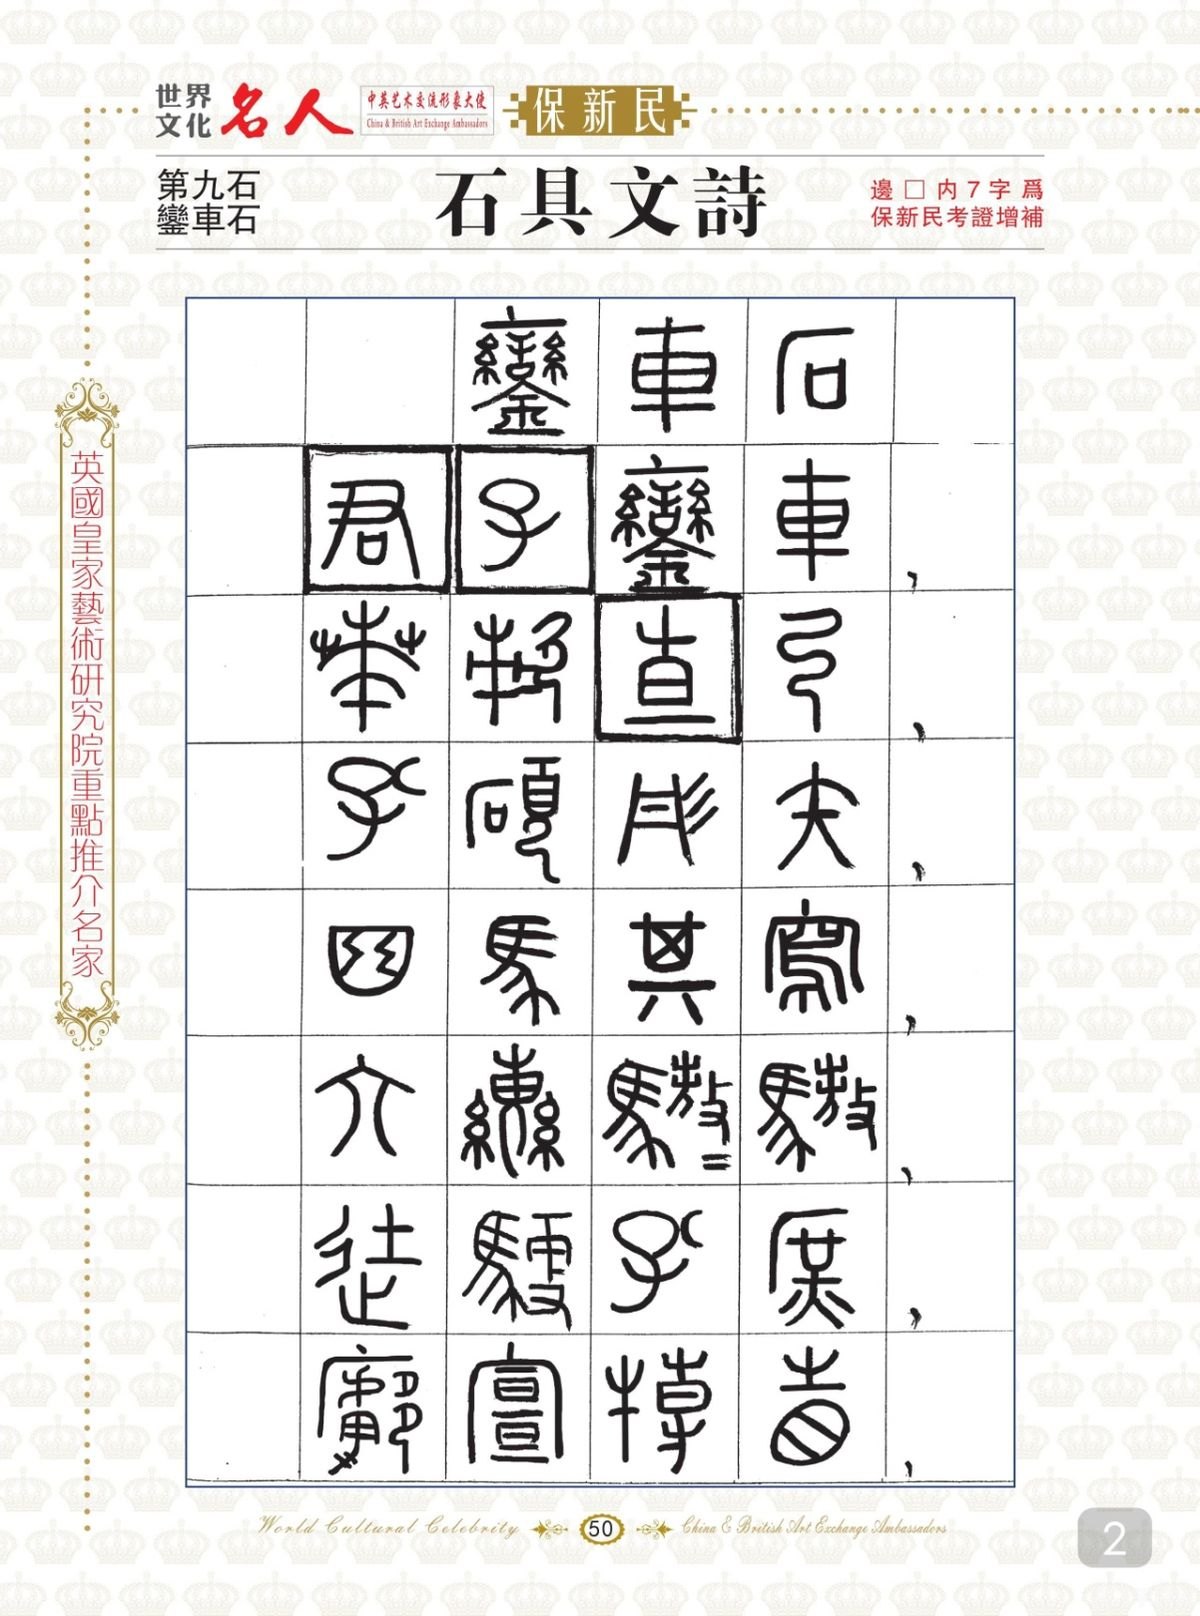 世界文化
名人
中英艺术交流形象大使
China & British Art Exchange Ambassadors
保新民
第九石
鑾車石
石具文詩
邊□内7字爲
保新民考證增補
英國皇家藝術研究院重點推介名家
鑾車石
君子鑾車,
敕直弓,
孔碩彤矢,
四馬其寫,
六轡驁=驁,
徒馭孔庶,
鄜宣搏眚,
World Cultural Celebrity
50
China & British Art Exchange Ambassadors
2